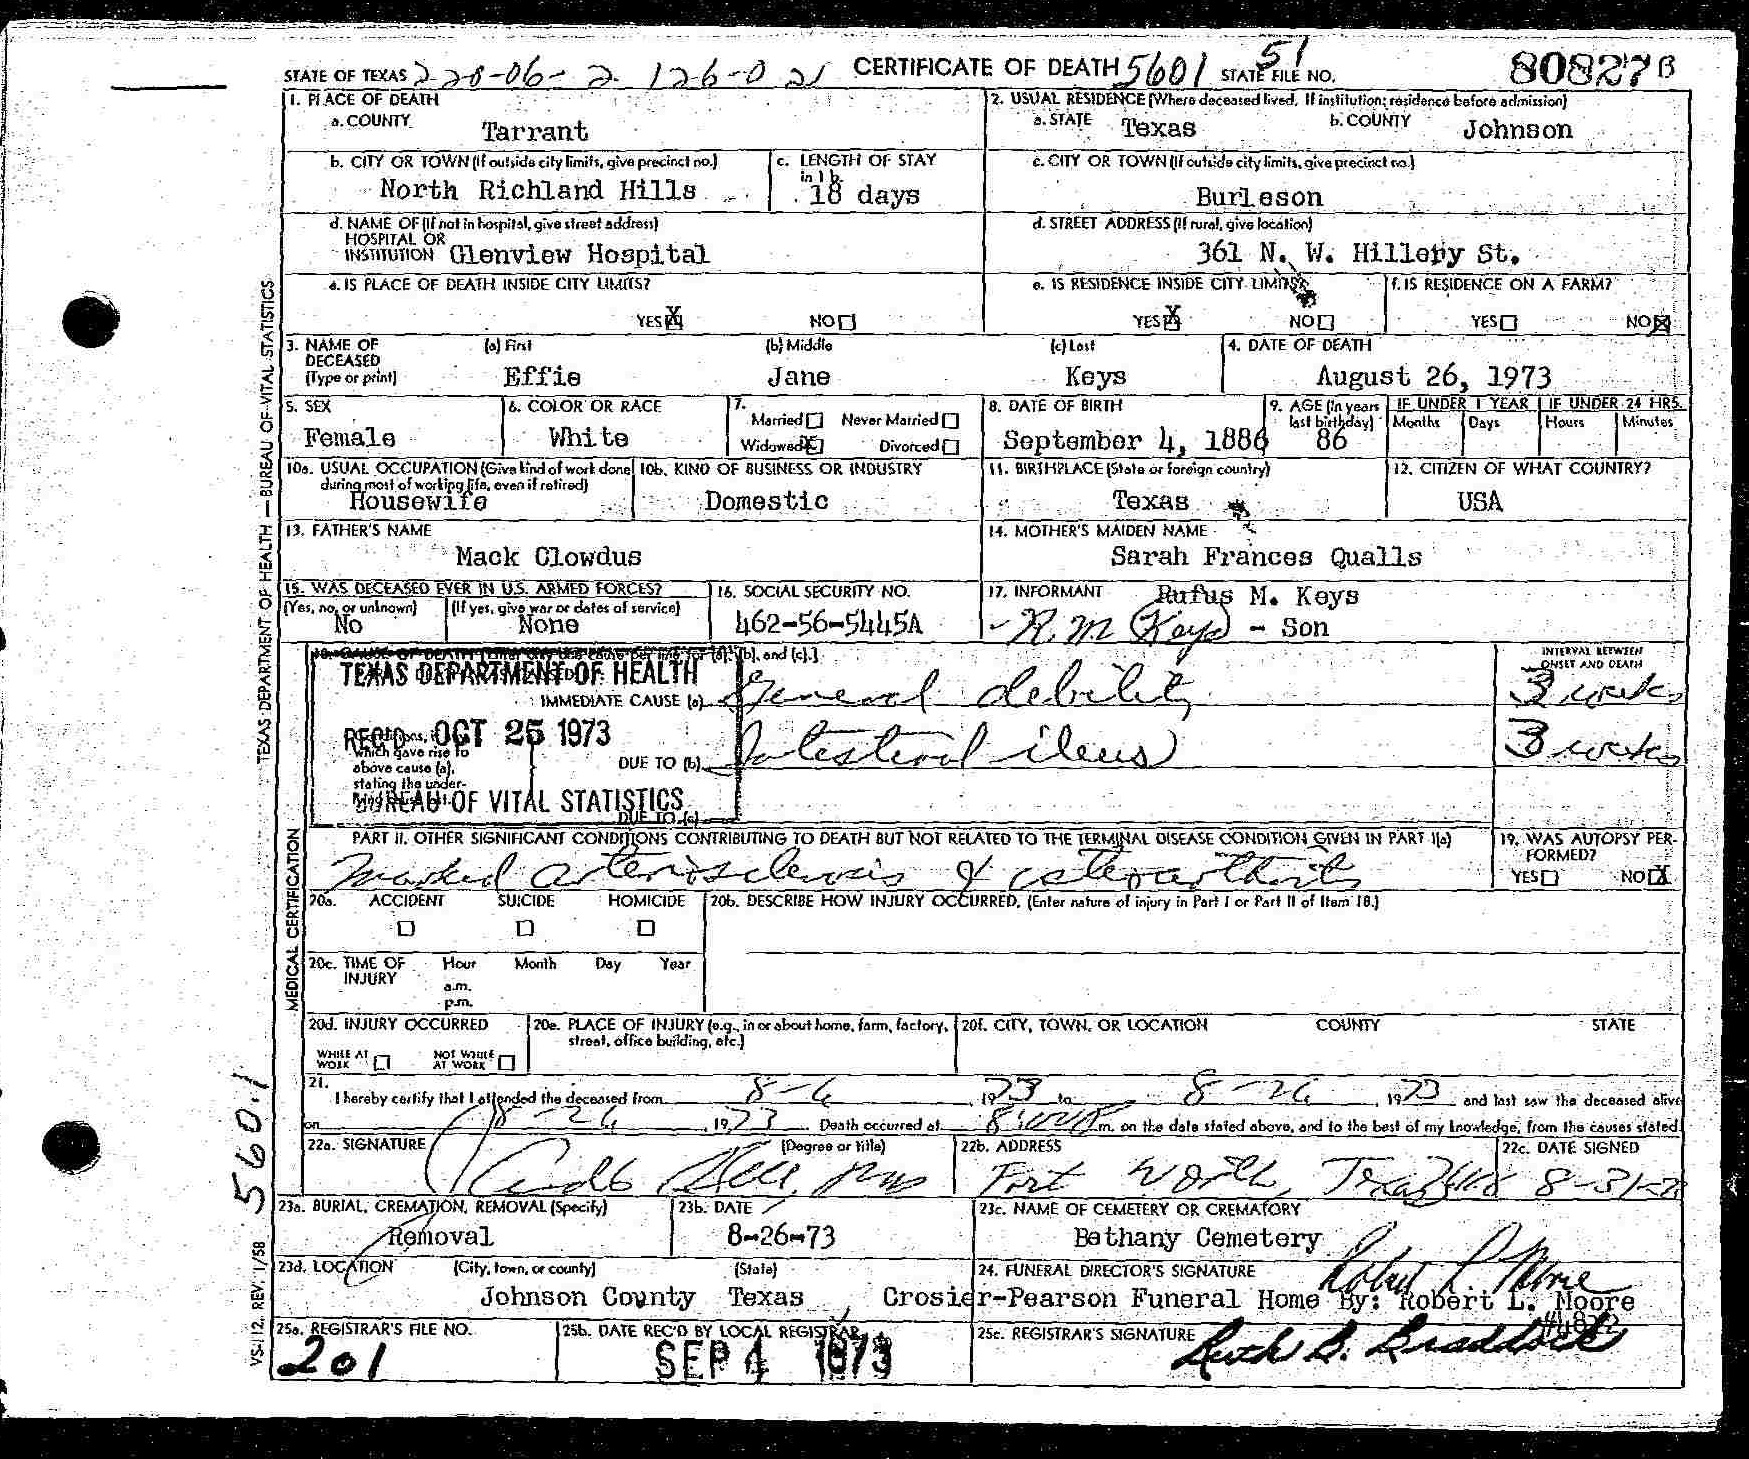 STATE OF TEXAS 220-06-2 126-0 21 CERTIFICATE OF DEATH 5601 51 STATE FILE NO. 80827 B
1. PLACE OF DEATH
a. COUNTY Tarrant
2. USUAL RESIDENCE (Where deceased lived. If institution: residence before admission)
a. STATE Texas b. COUNTY Johnson
b. CITY OR TOWN (If outside city limits, give precinct no.) North Richland Hills
c. LENGTH OF STAY in 1b. 18 days
c. CITY OR TOWN (If outside city limits, give precinct no.) Burleson
d. NAME OF (If not in hospital, give street address) HOSPITAL OR INSTITUTION Glenview Hospital
d. STREET ADDRESS (If rural, give location) 361 N. W. Hillery St.
e. IS PLACE OF DEATH INSIDE CITY LIMITS? YES X NO
e. IS RESIDENCE INSIDE CITY LIMITS? YES X NO
f. IS RESIDENCE ON A FARM? YES NO X
3. NAME OF DECEASED (Type or print)
(a) First Effie (b) Middle Jane (c) Last Keys
4. DATE OF DEATH August 26, 1973
5. SEX Female
6. COLOR OR RACE White
7. Married Never Married
Widowed X Divorced
8. DATE OF BIRTH September 4, 1886
9. AGE (In years last birthday) 86
IF UNDER 1 YEAR Months Days
IF UNDER 24 HRS. Hours Minutes
10a. USUAL OCCUPATION (Give kind of work done during most of working life, even if retired) Housewife
10b. KIND OF BUSINESS OR INDUSTRY Domestic
11. BIRTHPLACE (State or foreign country) Texas
12. CITIZEN OF WHAT COUNTRY? USA
13. FATHER'S NAME Mack Clowdus
14. MOTHER'S MAIDEN NAME Sarah Frances Qualls
15. WAS DECEASED EVER IN U.S. ARMED FORCES?
(Yes, no, or unknown) No (If yes, give war or dates of service) None
16. SOCIAL SECURITY NO. 462-56-5445A
17. INFORMANT Rufus M. Keys
- R. M. Keys - Son
TEXAS DEPARTMENT OF HEALTH
REC'D OCT 25 1973
BUREAU OF VITAL STATISTICS
(b), and (c).]
INTERVAL BETWEEN ONSET AND DEATH
IMMEDIATE CAUSE (a) General debility 3 weeks
which gave rise to above cause (a), stating the under-
DUE TO (b) Intestinal ileus 3 weeks
DUE TO (c)
PART II. OTHER SIGNIFICANT CONDITIONS CONTRIBUTING TO DEATH BUT NOT RELATED TO THE TERMINAL DISEASE CONDITION GIVEN IN PART I(a)
Marked arteriosclerosis & osteoarthritis
19. WAS AUTOPSY PERFORMED? YES NO X
20a. ACCIDENT SUICIDE HOMICIDE
20b. DESCRIBE HOW INJURY OCCURRED. (Enter nature of injury in Part I or Part II of Item 18.)
20c. TIME OF INJURY Hour Month Day Year
a.m.
p.m.
20d. INJURY OCCURRED
WHILE AT WORK NOT WHILE AT WORK
20e. PLACE OF INJURY (e.g., in or about home, farm, factory, street, office building, etc.)
20f. CITY, TOWN, OR LOCATION COUNTY STATE
21. I hereby certify that I attended the deceased from 8-6, 1973 to 8-26, 1973 and last saw the deceased alive
on 8-26, 1973. Death occurred at m. on the date stated above, and to the best of my knowledge, from the causes stated.
22a. SIGNATURE (Degree or title)
22b. ADDRESS Fort Worth, Texas
22c. DATE SIGNED 8-31-73
23a. BURIAL, CREMATION, REMOVAL (Specify) Removal
23b. DATE 8-26-73
23c. NAME OF CEMETERY OR CREMATORY Bethany Cemetery
23d. LOCATION (City, town, or county) (State)
Johnson County Texas
24. FUNERAL DIRECTOR'S SIGNATURE Robert L. Moore
Crosier-Pearson Funeral Home By: Robert L. Moore
#4822
25a. REGISTRAR'S FILE NO. 201
25b. DATE REC'D BY LOCAL REGISTRAR SEP 4 1973
25c. REGISTRAR'S SIGNATURE Ruth B. Braddock
TEXAS DEPARTMENT OF HEALTH — BUREAU OF VITAL STATISTICS
MEDICAL CERTIFICATION
5601
VS-112, REV. 1/58